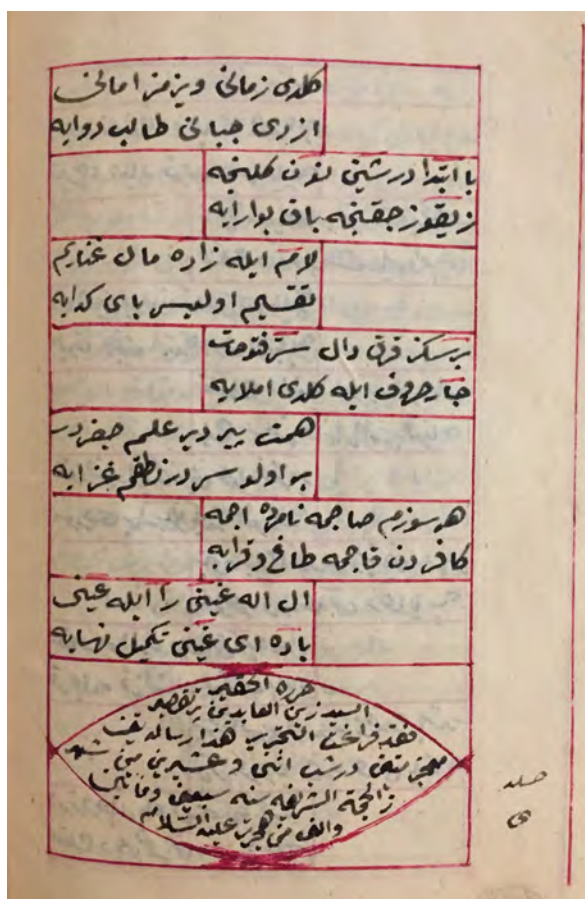 كلدى زمانى ويرمز امانى
ازدى جبانى طالب دوايه
با ابتدا در شينى نون كلنجه
زيقوز جقنجه باق بوارايه
لامم ايله زاده مال غنايم
تقسيم اولميسر باى كدايه
برسكز فرق دال ستر فتوحات
جار حروف ايله كلدى املايه
همت پير دير علمم جفردر
بو اولو سردر نطقم غزايه
هر سوزم صاچمه نامرده اچمه
كافردن قاچمه طاغ و قرايه
ال اله غينى را ايله عينى
باده اى غينى تكميل نهايه
حرره الحقير
السيد زين العابدين پر تقصير
فقد فراغت التحرير هذا رساله
در شب اثنى و عشيرين من شهر
ذالحجة الشريفه سنه سبعين و مأتين
والف من هجرت عليه السلام